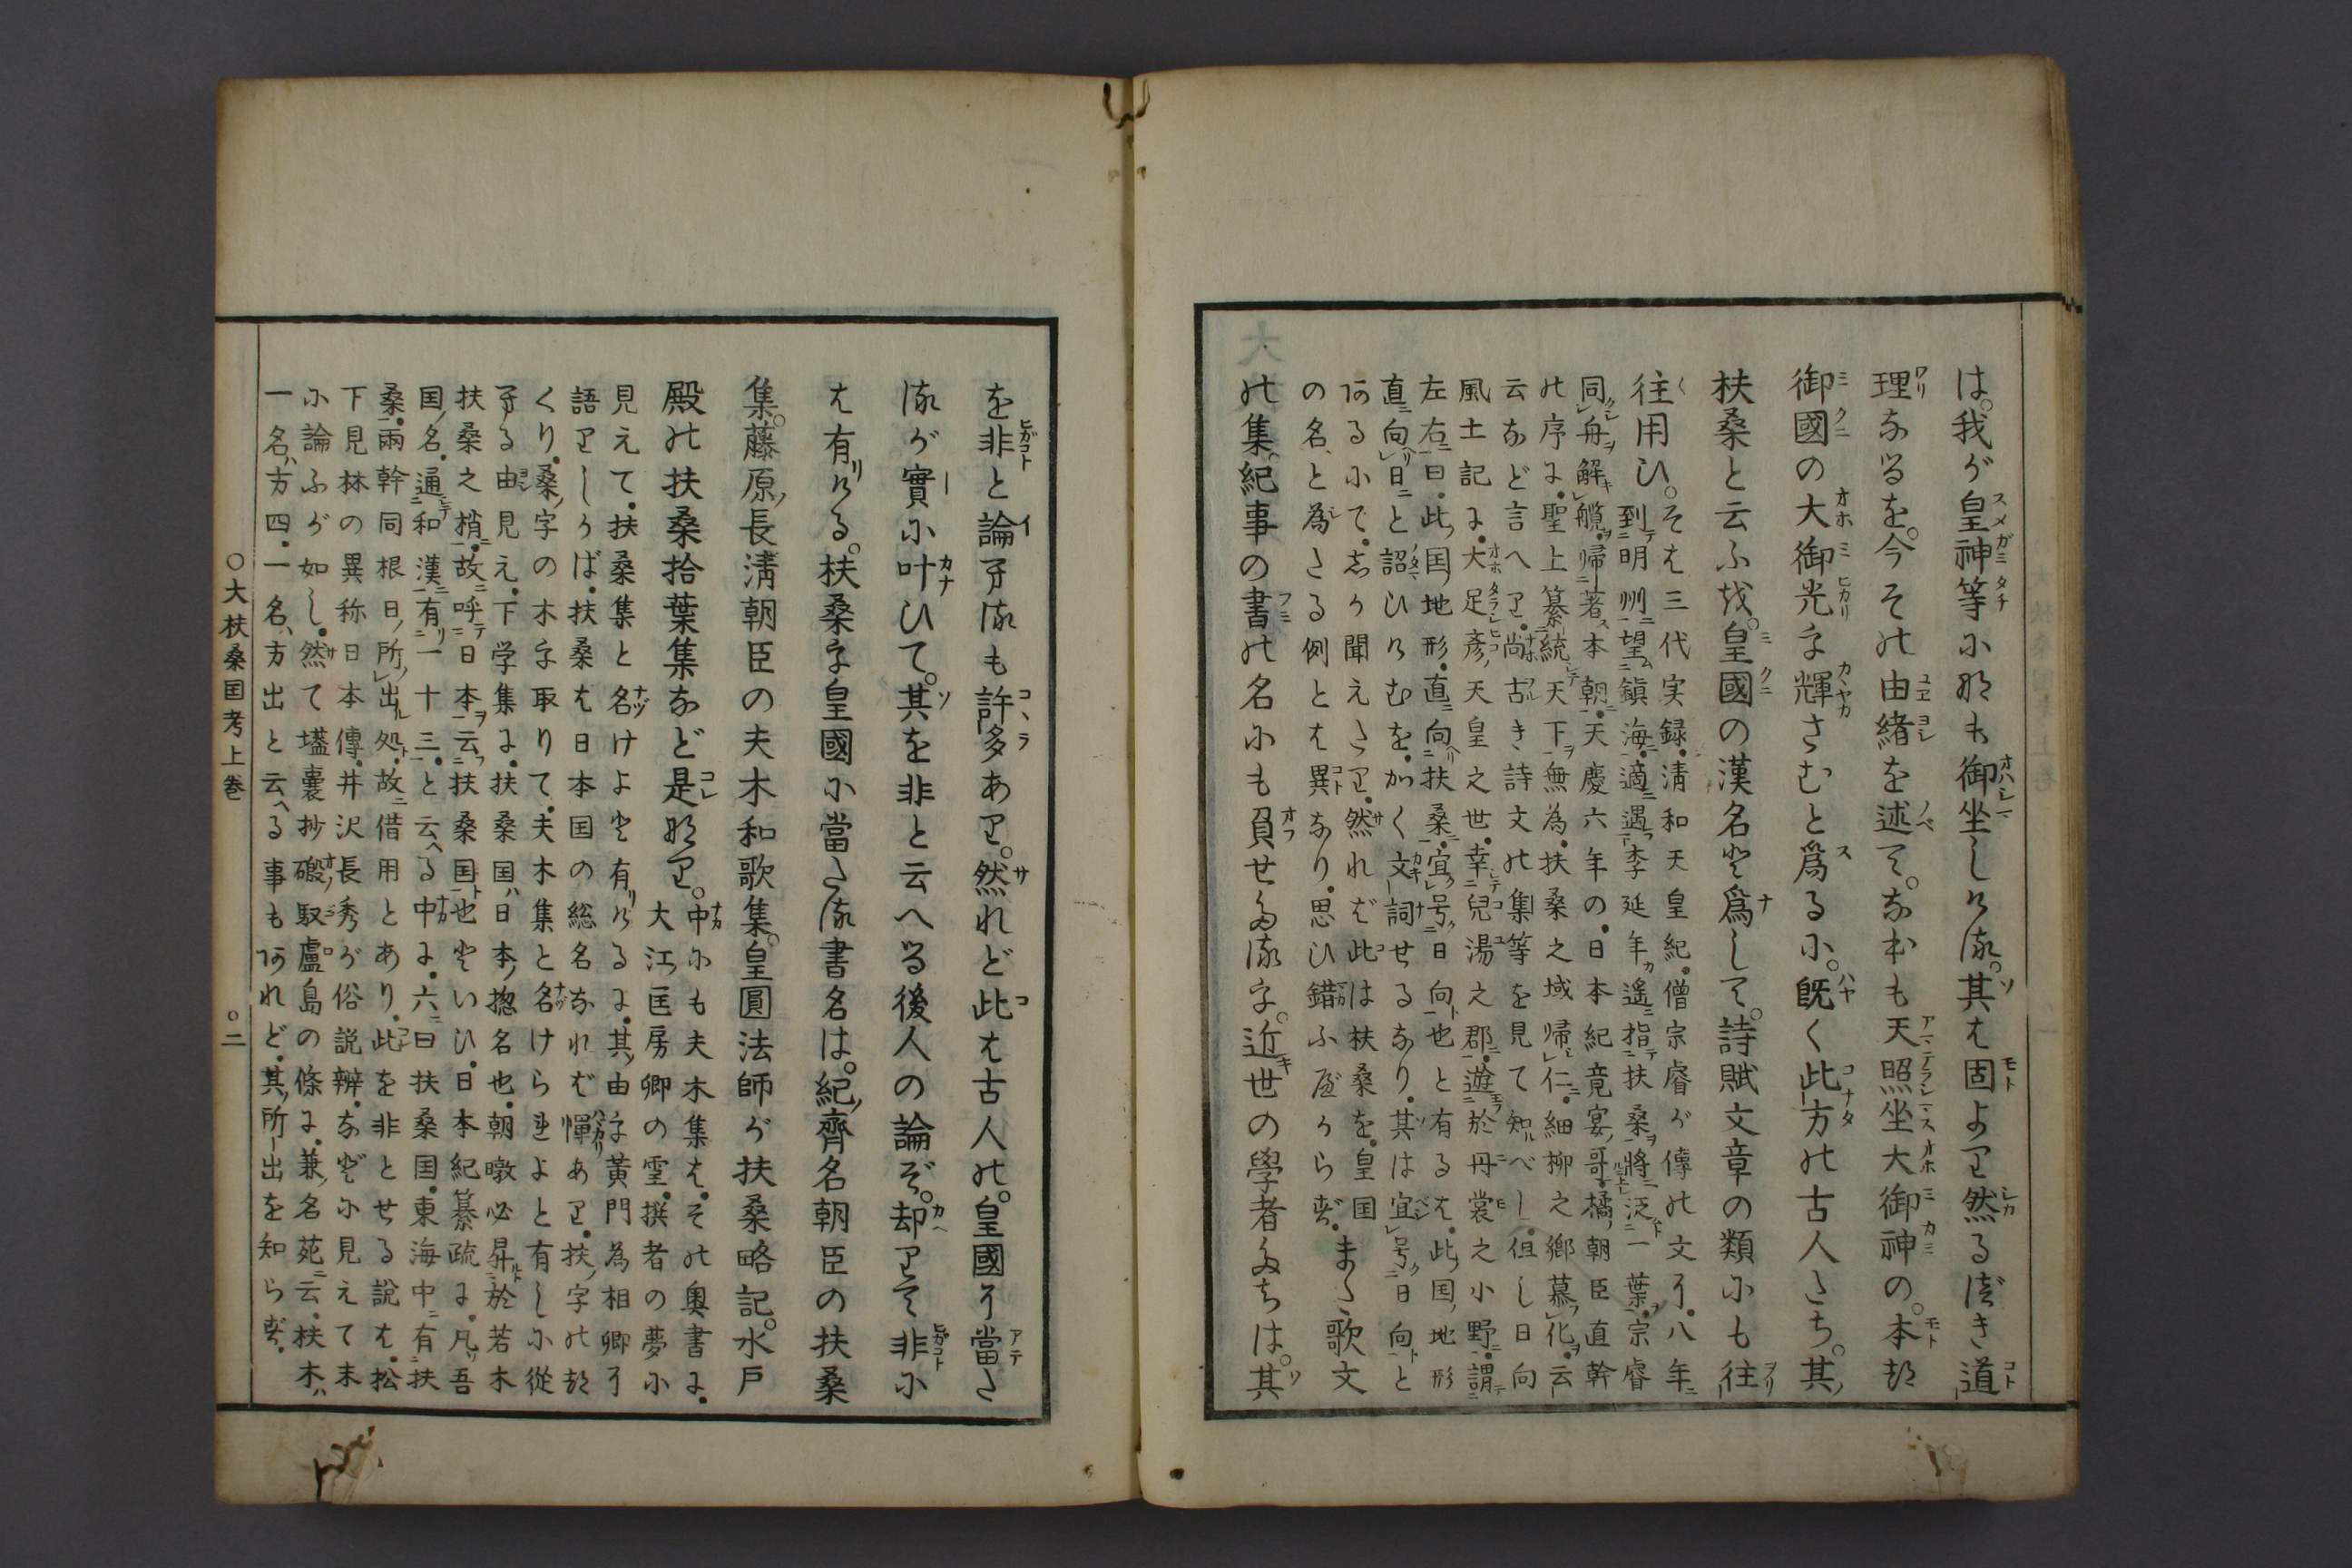 は。我が皇神等に好も御坐しける。其は固より然るべき道
理なるを。今その由緒を述て。なほも天照坐大御神の。本都
御國の大御光を輝さむと爲るに。既く此方の古人たち。其
扶桑と云ふ哉。皇國の漢名と爲して。詩賦文章の類にも往
往用ひ。そは三代実録。清和天皇紀。僧宗睿が傳の文に。八年
到明州望鎮海。適遇李延年遥指扶桑将泛一葉。宗睿
同舟解纜。帰著本朝。天慶六年の。日本紀竟宴哥。橘朝臣直幹
の序に。聖上纂統天下無為。扶桑之域帰仁。細柳之郷慕化。云
云など言へり。尚古き詩文の集等を見て知べし。但し日向
風土記に。大足彦天皇之世。幸兒湯之郡。遊於丹裳之小野。謂
左右曰。此国地形。直向扶桑。宜号日向也と有るは。此国地形
直向日と詔ひけむを。かく文詞せるなり。其は宜号日向と
有るにて。しか聞えたり。然れば此は扶桑を。皇国
の名と為たる例とは異なり。思ひ錯ふべからず。また歌文
の集。紀事の書の名にも負せたるを。近世の學者たちは。其
を非と論するも許多あり。然れど此は古人の。皇國に當た
るが實に叶ひて。其を非と云へる後人の論ぞ。却りて非に
は有ける。扶桑を皇國に當たる書名は。紀齊名朝臣の扶桑
集。藤原長淸朝臣の夫木和歌集。皇圓法師が扶桑略記。水戸
殿の扶桑拾葉集など是なり。中にも夫木集は。その奥書に。
大江匡房卿の霊。撰者の夢に
見えて。扶桑集と名けよと有けるに。其由を黄門為相卿に
語りしかば。扶桑は日本国の総名なれば憚あり。扶字の
くり。桑字の木を取りて。夫木集と名けられよと有しに従
する由見え。下学集に。扶桑国。日本総名也。朝暾必昇於若木
扶桑之梢。故呼日本云扶桑国也といひ。日本紀纂疏に。凡吾
国名。通和漢有一十三。と云へる中に。六曰扶桑国。東海中有扶
桑。兩幹同根日所出処。故借用とあり。此を非とせる説は。松
下見林の異称日本傳。井沢長秀が俗説辨。などに見えて末
に論ふが如し。然て壒嚢抄磤馭盧島の條に。兼名苑云。扶木
一名方四。一名方出と云へる事も有れど。其所出を知らず。
○大扶桑国考上巻
○二